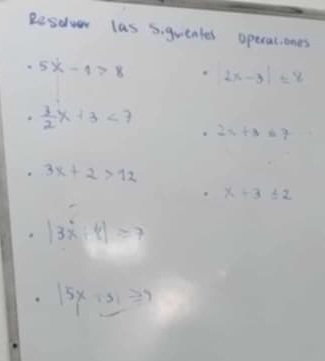 Resolver las siguientes operaciones
• 5x - 1 > 8
• 3/2 x + 3 < 7
• 3x + 2 > 12
• |3x + 4| ≥ 7
• |5x + 3| ≥ 9
• |2x - 3| ≤ 8
• 2x + 3 ≤ 7
• x + 3 ≤ 2